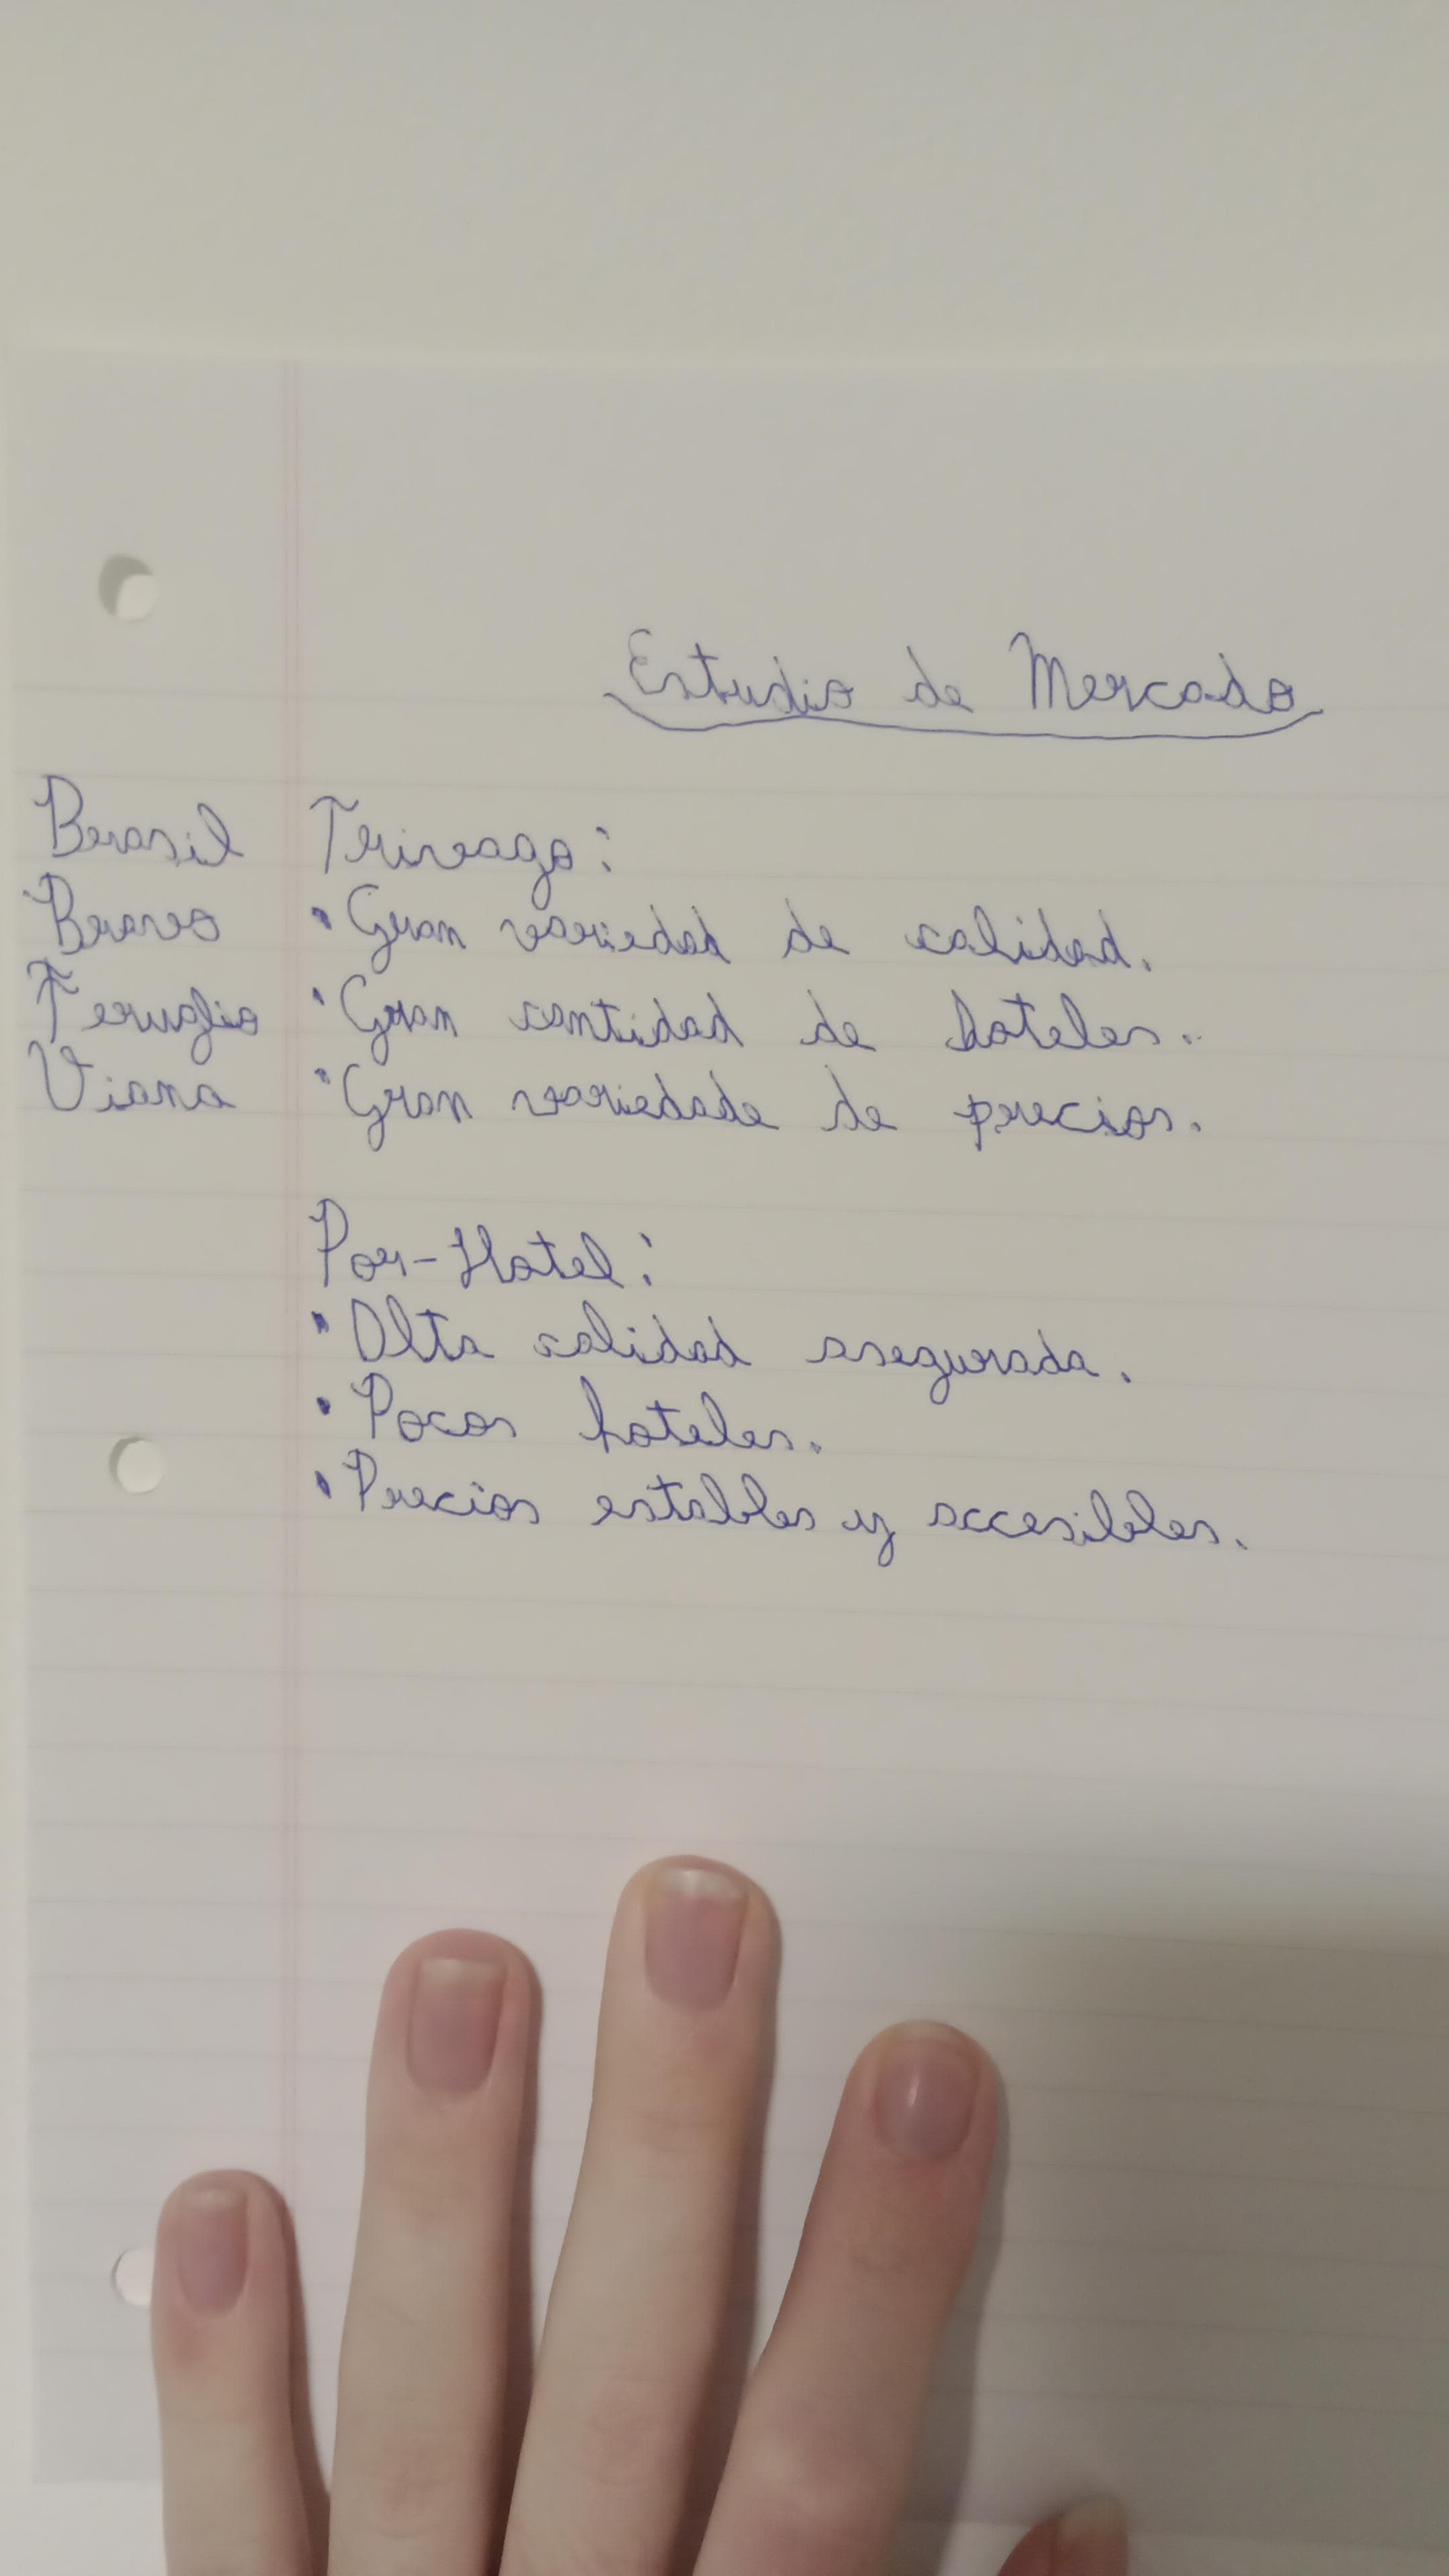 Estudio de Mercado
Brasil
Bravo
Feruglio
Viana
Trivago:
• Gran variedad de calidad.
• Gran cantidad de hoteles.
• Gran variedade de precios.
Por-Hotel:
• Alta calidad asegurada.
• Pocos hoteles.
• Precios estables y accesibles.